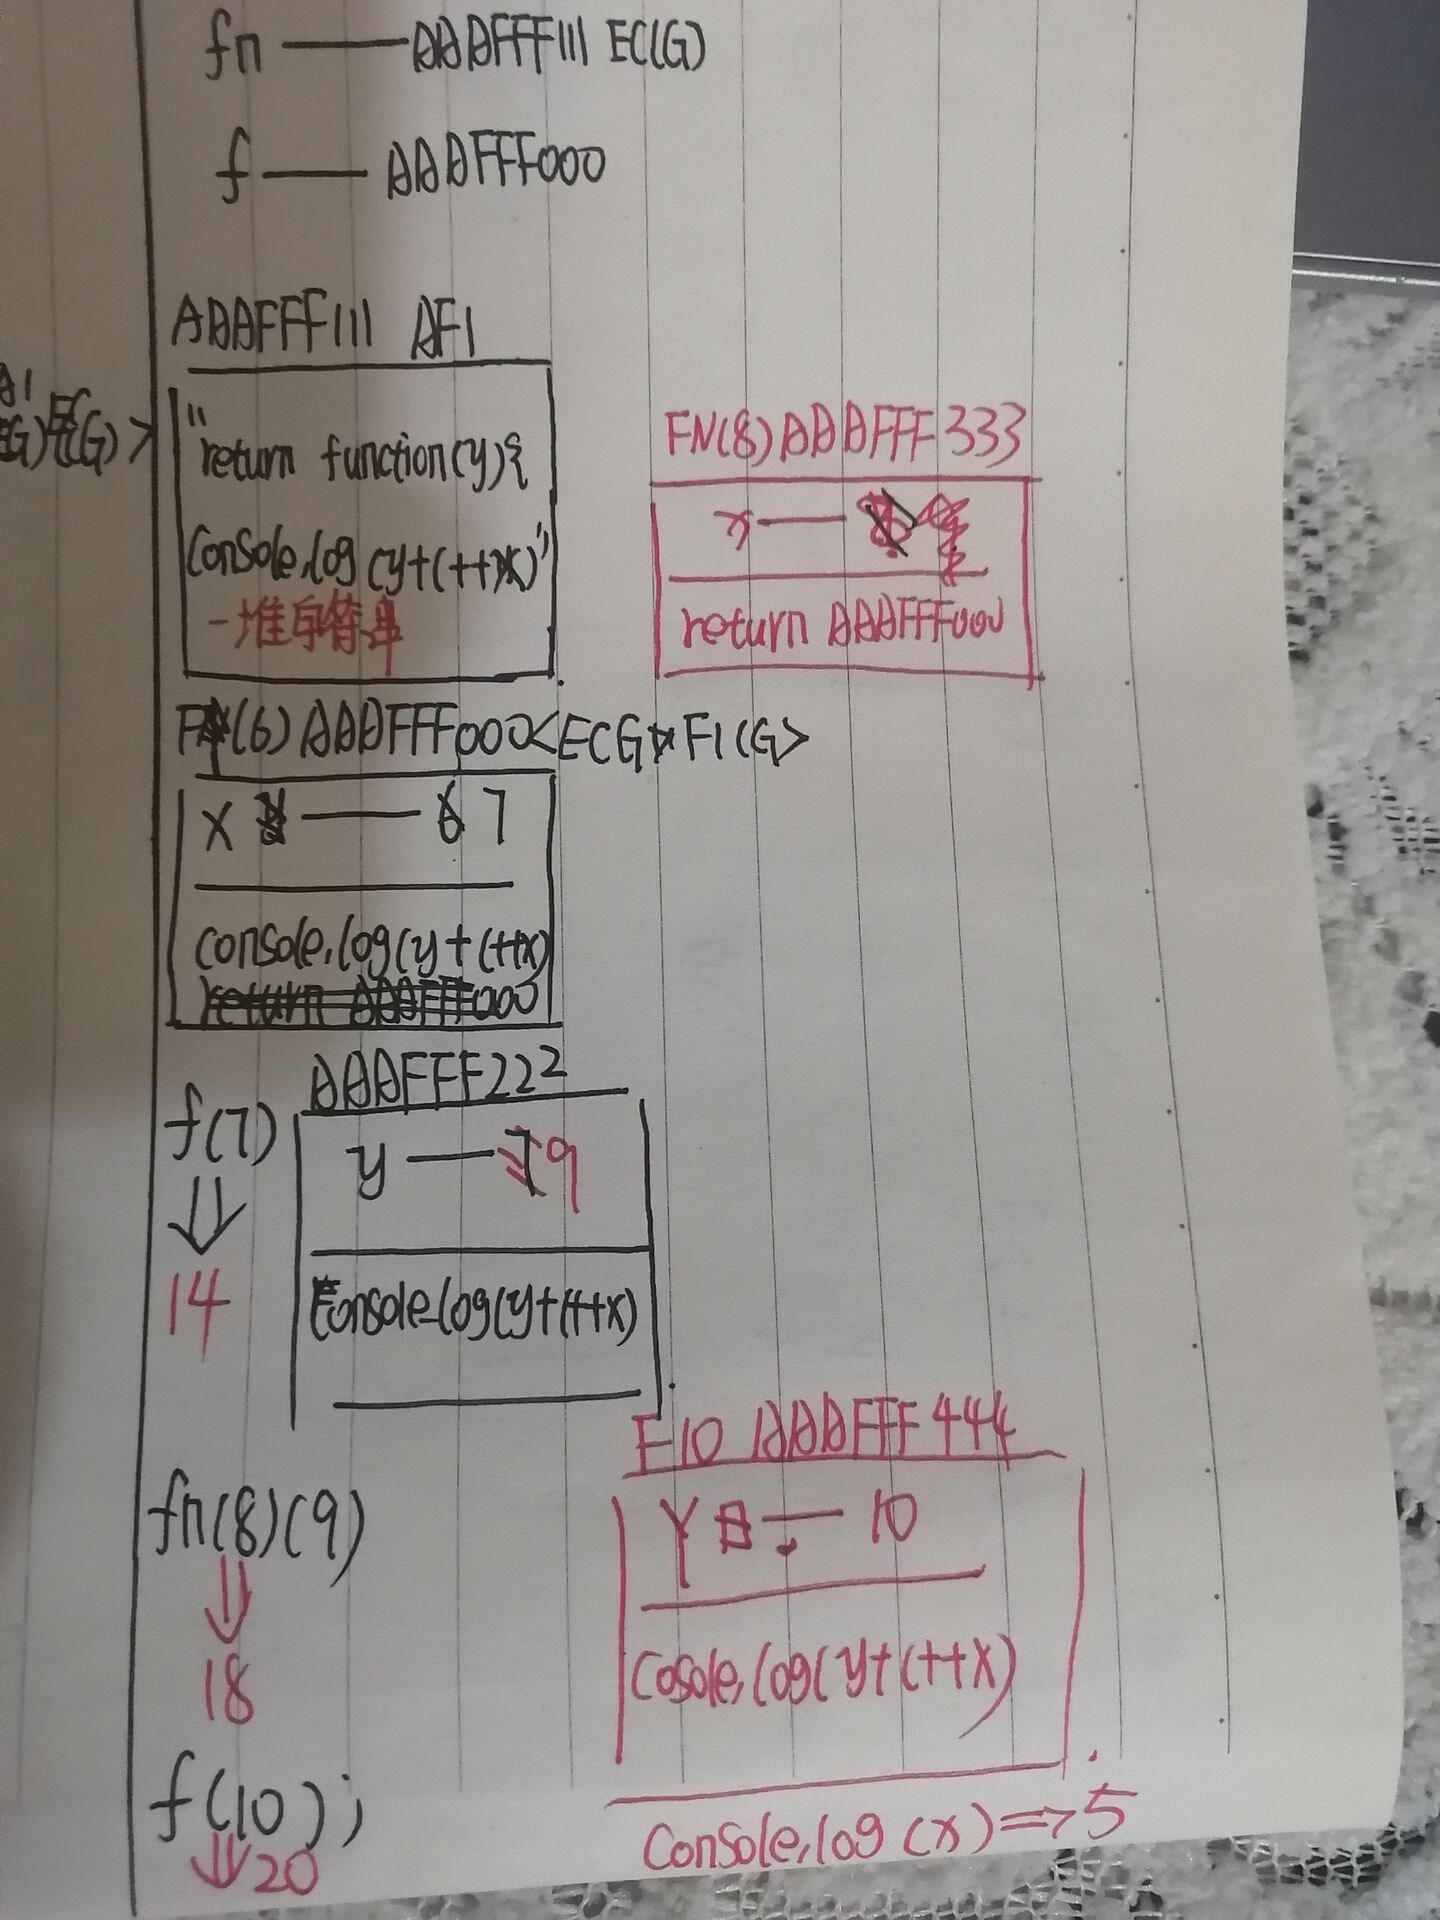 fn —— AAAFFF111 EC(G)
f —— AAAFFF000
AAAFFF111 AF1
"return function(y){
console.log(y+(++x)"
一堆字符串
FN(8)AAAFFF333
x ——
return AAAFFF000
(6) AAAFFF000<ECG F1(G>
x —— 6 7
console.log(y+(++x)
return AAAFFF000
AAAFFF222
f(7)
y —— 7 9
console.log(y+(++x)
14
F10 AAAFFF444
Y —— 10
Cosole.log(y+(++x)
fn(8)(9)
18
f(10);
20
Console.log(x)=>5